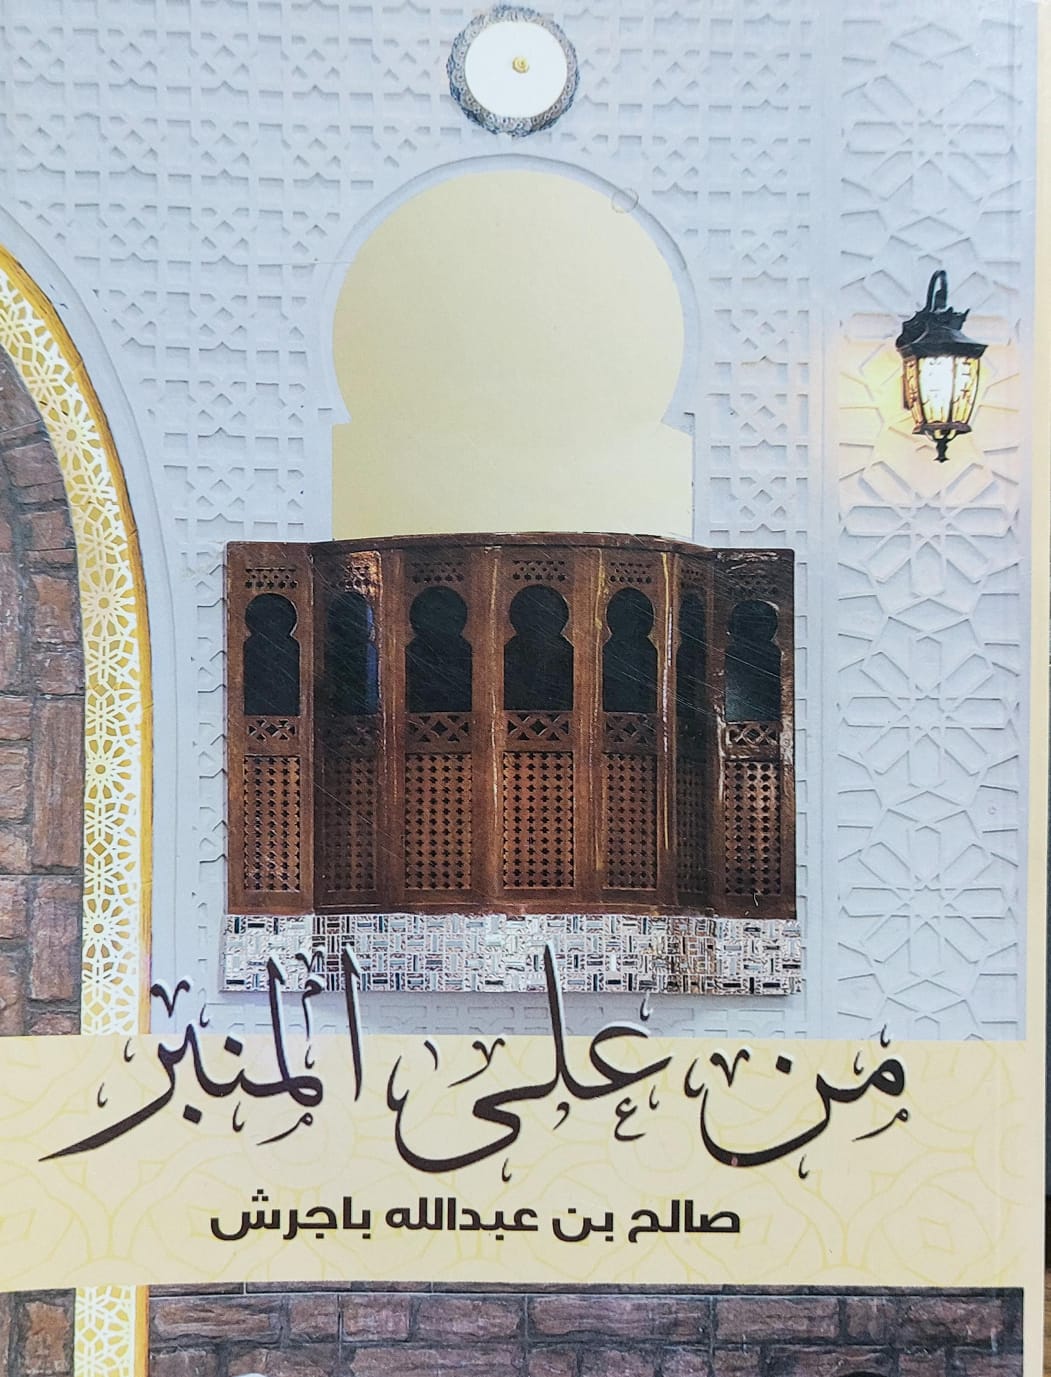 من على المنبر
صالح بن عبدالله باجرش